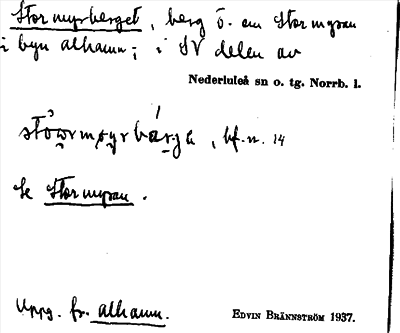 Stormyrberget, berg ö. om Stormyran
i byn Alhamn; i SV delen av
Nederluleå sn o. tg. Norrb. l.
bf. n. 14
Se Stormyran.
Uppg. fr. Alhamn. EDVIN BRÄNNSTRÖM 1937.